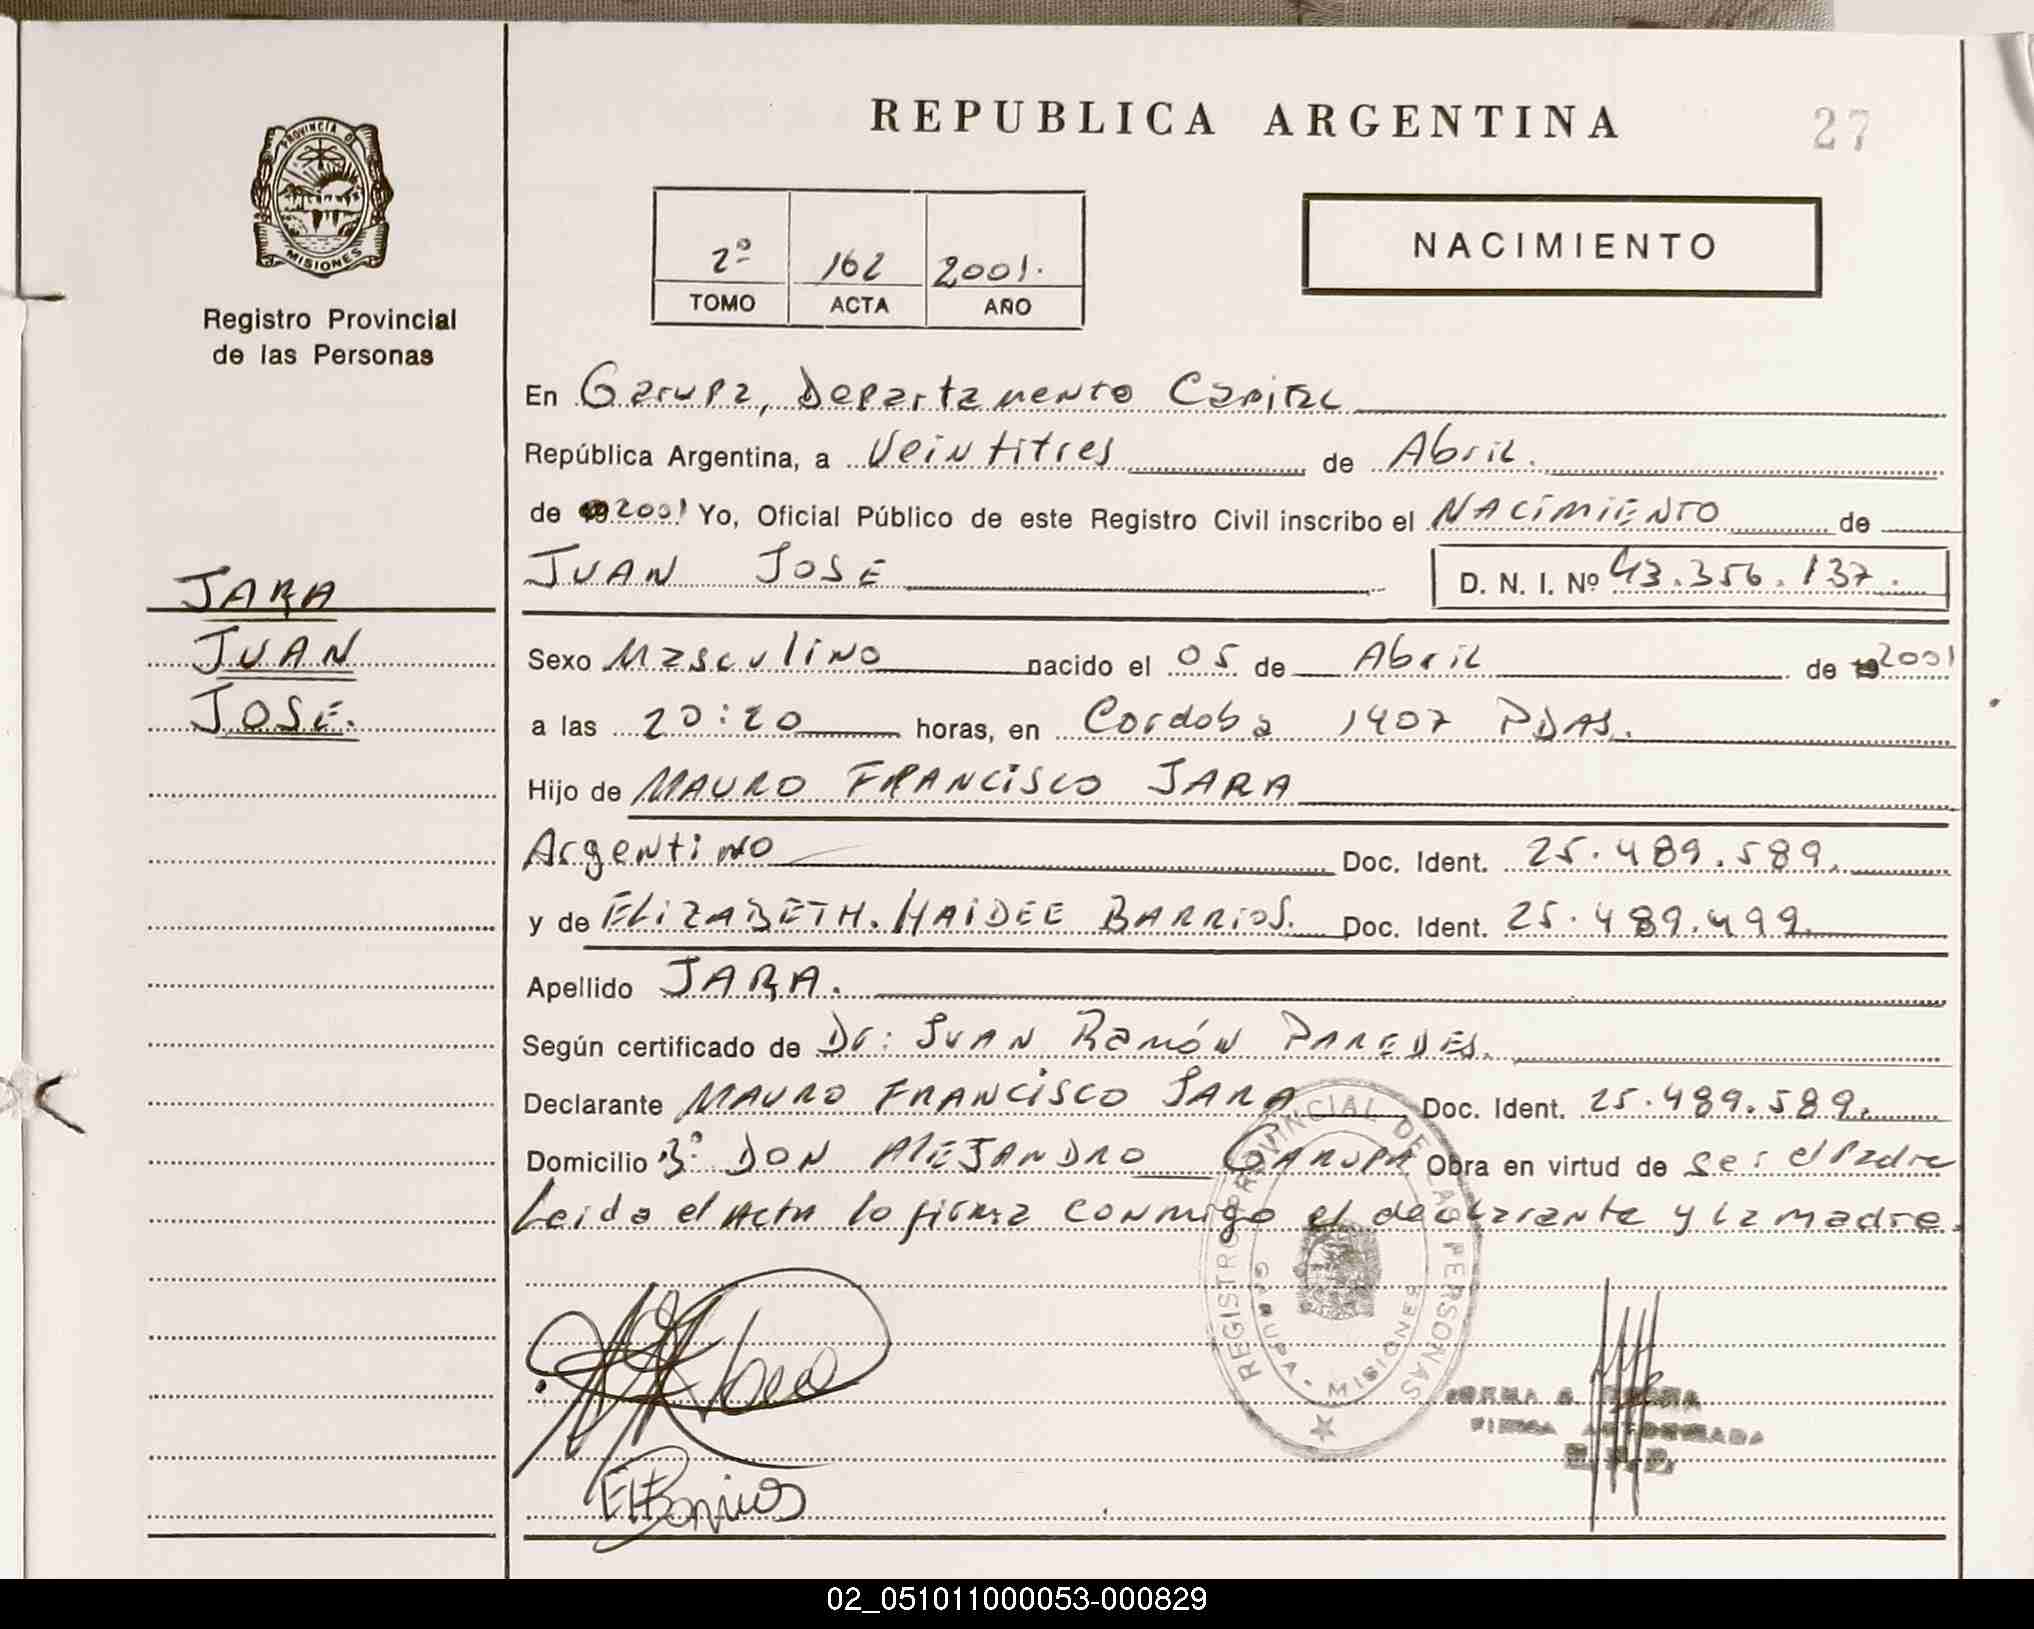 PROVINCIA DE
MISIONES
Registro Provincial
de las Personas
JARA
JUAN
JOSE.
REPUBLICA ARGENTINA
27
2º 162 2001.
TOMO ACTA AÑO
NACIMIENTO
En Garupa, Departamento Capital
República Argentina, a Veintitres de Abril.
de 19 2001 Yo, Oficial Público de este Registro Civil inscribo el NACIMIENTO de
JUAN JOSE D. N. I. Nº 43.356.137.
Sexo Masculino nacido el 05 de Abril de 19 2001
a las 20:20 horas, en Cordoba 1407 PDAS.
Hijo de MAURO FRANCISCO JARA
Argentino Doc. Ident. 25.489.589.
y de ELIZABETH. HAIDEE BARRIOS. Doc. Ident. 25.489.499.
Apellido JARA.
Según certificado de Dr: JUAN Ramón PAREDES.
Declarante MAURO FRANCISCO JARA Doc. Ident. 25.489.589.
Domicilio Bº DON ALEJANDRO GARUPA Obra en virtud de ser el Padre
Leida el Acta lo firma conmigo el declarante y la madre.
REGISTRO PROVINCIAL DE LAS PERSONAS
GARUPA - MISIONES
EHBarrios
FIRMA AUTORIZADA
02_051011000053-000829